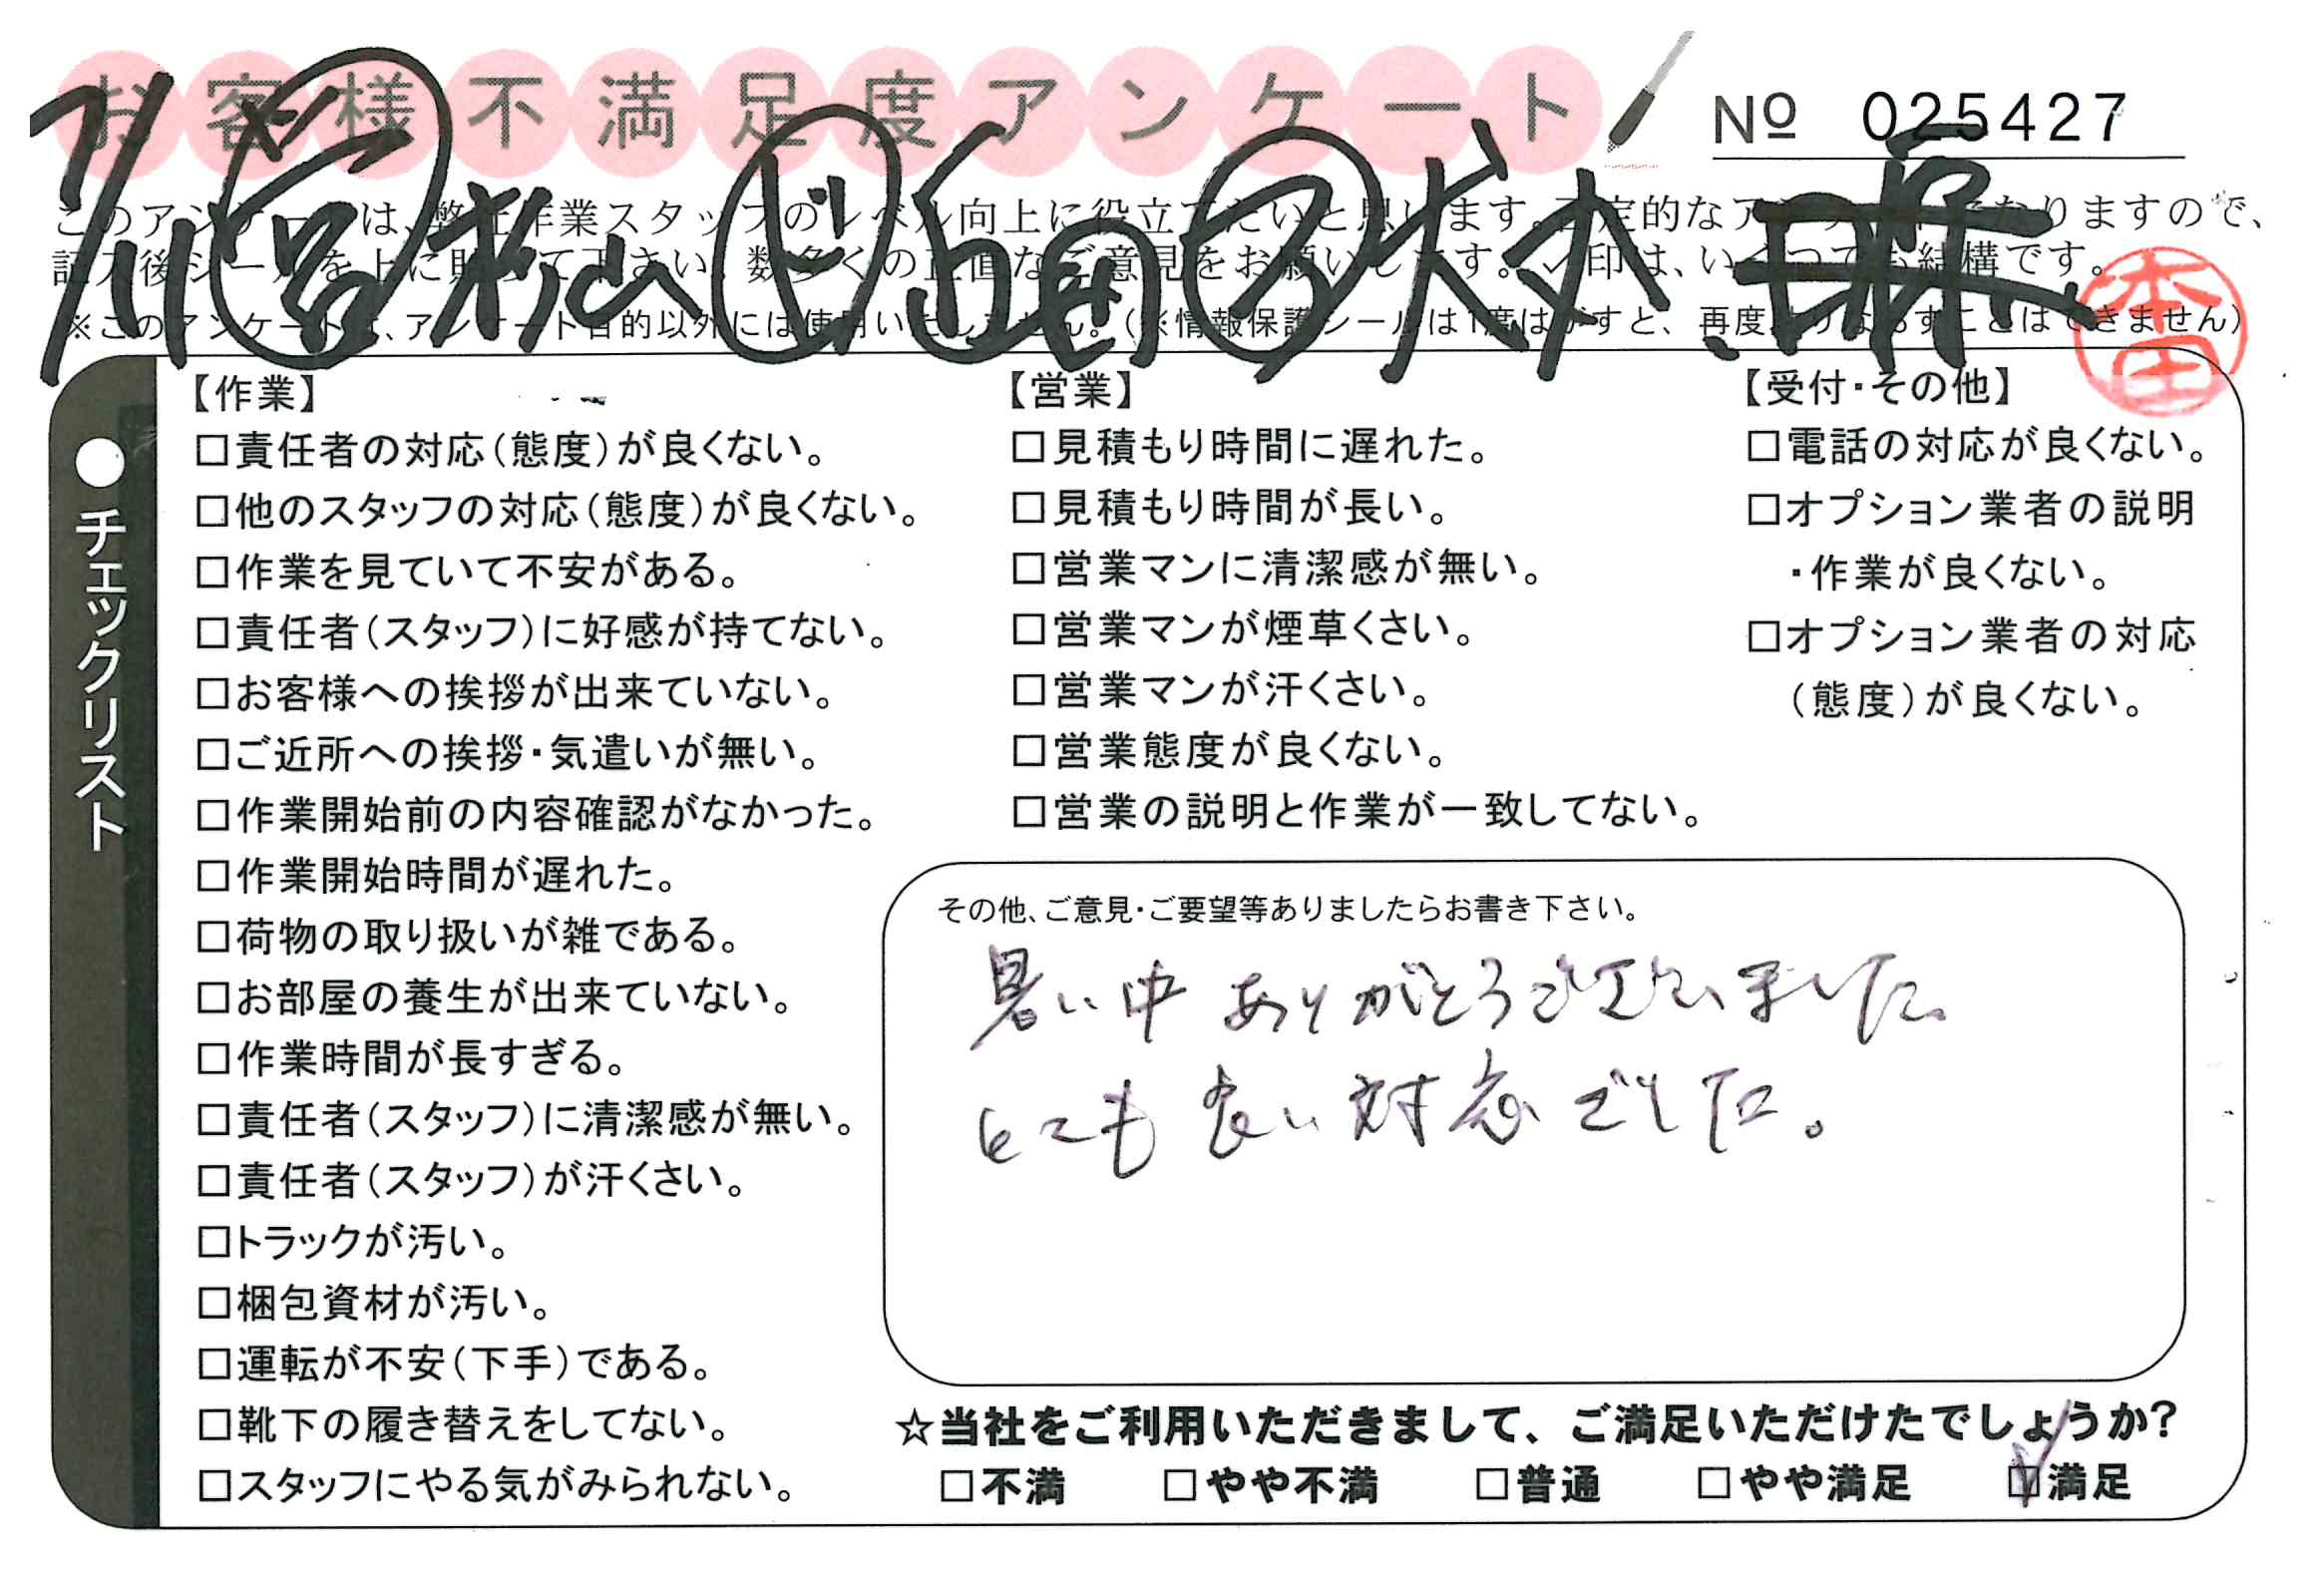 お客様不満足度アンケート
№ 025427
7/11
松山
このアンケートは、弊社作業スタッフのレベル向上に役立てたいと思います。
記入後シールを上に貼って下さい。数多くの正直なご意見をお願いします。レ印は、いくつでも結構です。
※このアンケートは、アンケート目的以外には使用いたしません。(※情報保護シールは1度はがすと、再度はりなおすことはできません)
本田
●チェックリスト
【作業】
□責任者の対応(態度)が良くない。
□他のスタッフの対応(態度)が良くない。
□作業を見ていて不安がある。
□責任者(スタッフ)に好感が持てない。
□お客様への挨拶が出来ていない。
□ご近所への挨拶・気遣いが無い。
□作業開始前の内容確認がなかった。
□作業開始時間が遅れた。
□荷物の取り扱いが雑である。
□お部屋の養生が出来ていない。
□作業時間が長すぎる。
□責任者(スタッフ)に清潔感が無い。
□責任者(スタッフ)が汗くさい。
□トラックが汚い。
□梱包資材が汚い。
□運転が不安(下手)である。
□靴下の履き替えをしてない。
□スタッフにやる気がみられない。
【営業】
□見積もり時間に遅れた。
□見積もり時間が長い。
□営業マンに清潔感が無い。
□営業マンが煙草くさい。
□営業マンが汗くさい。
□営業態度が良くない。
□営業の説明と作業が一致してない。
【受付・その他】
□電話の対応が良くない。
□オプション業者の説明
・作業が良くない。
□オプション業者の対応
(態度)が良くない。
その他、ご意見・ご要望等ありましたらお書き下さい。
暑い中ありがとうございました。
とても良い対応でした。
☆当社をご利用いただきまして、ご満足いただけたでしょうか?
□不満 □やや不満 □普通 □やや満足 ☑満足